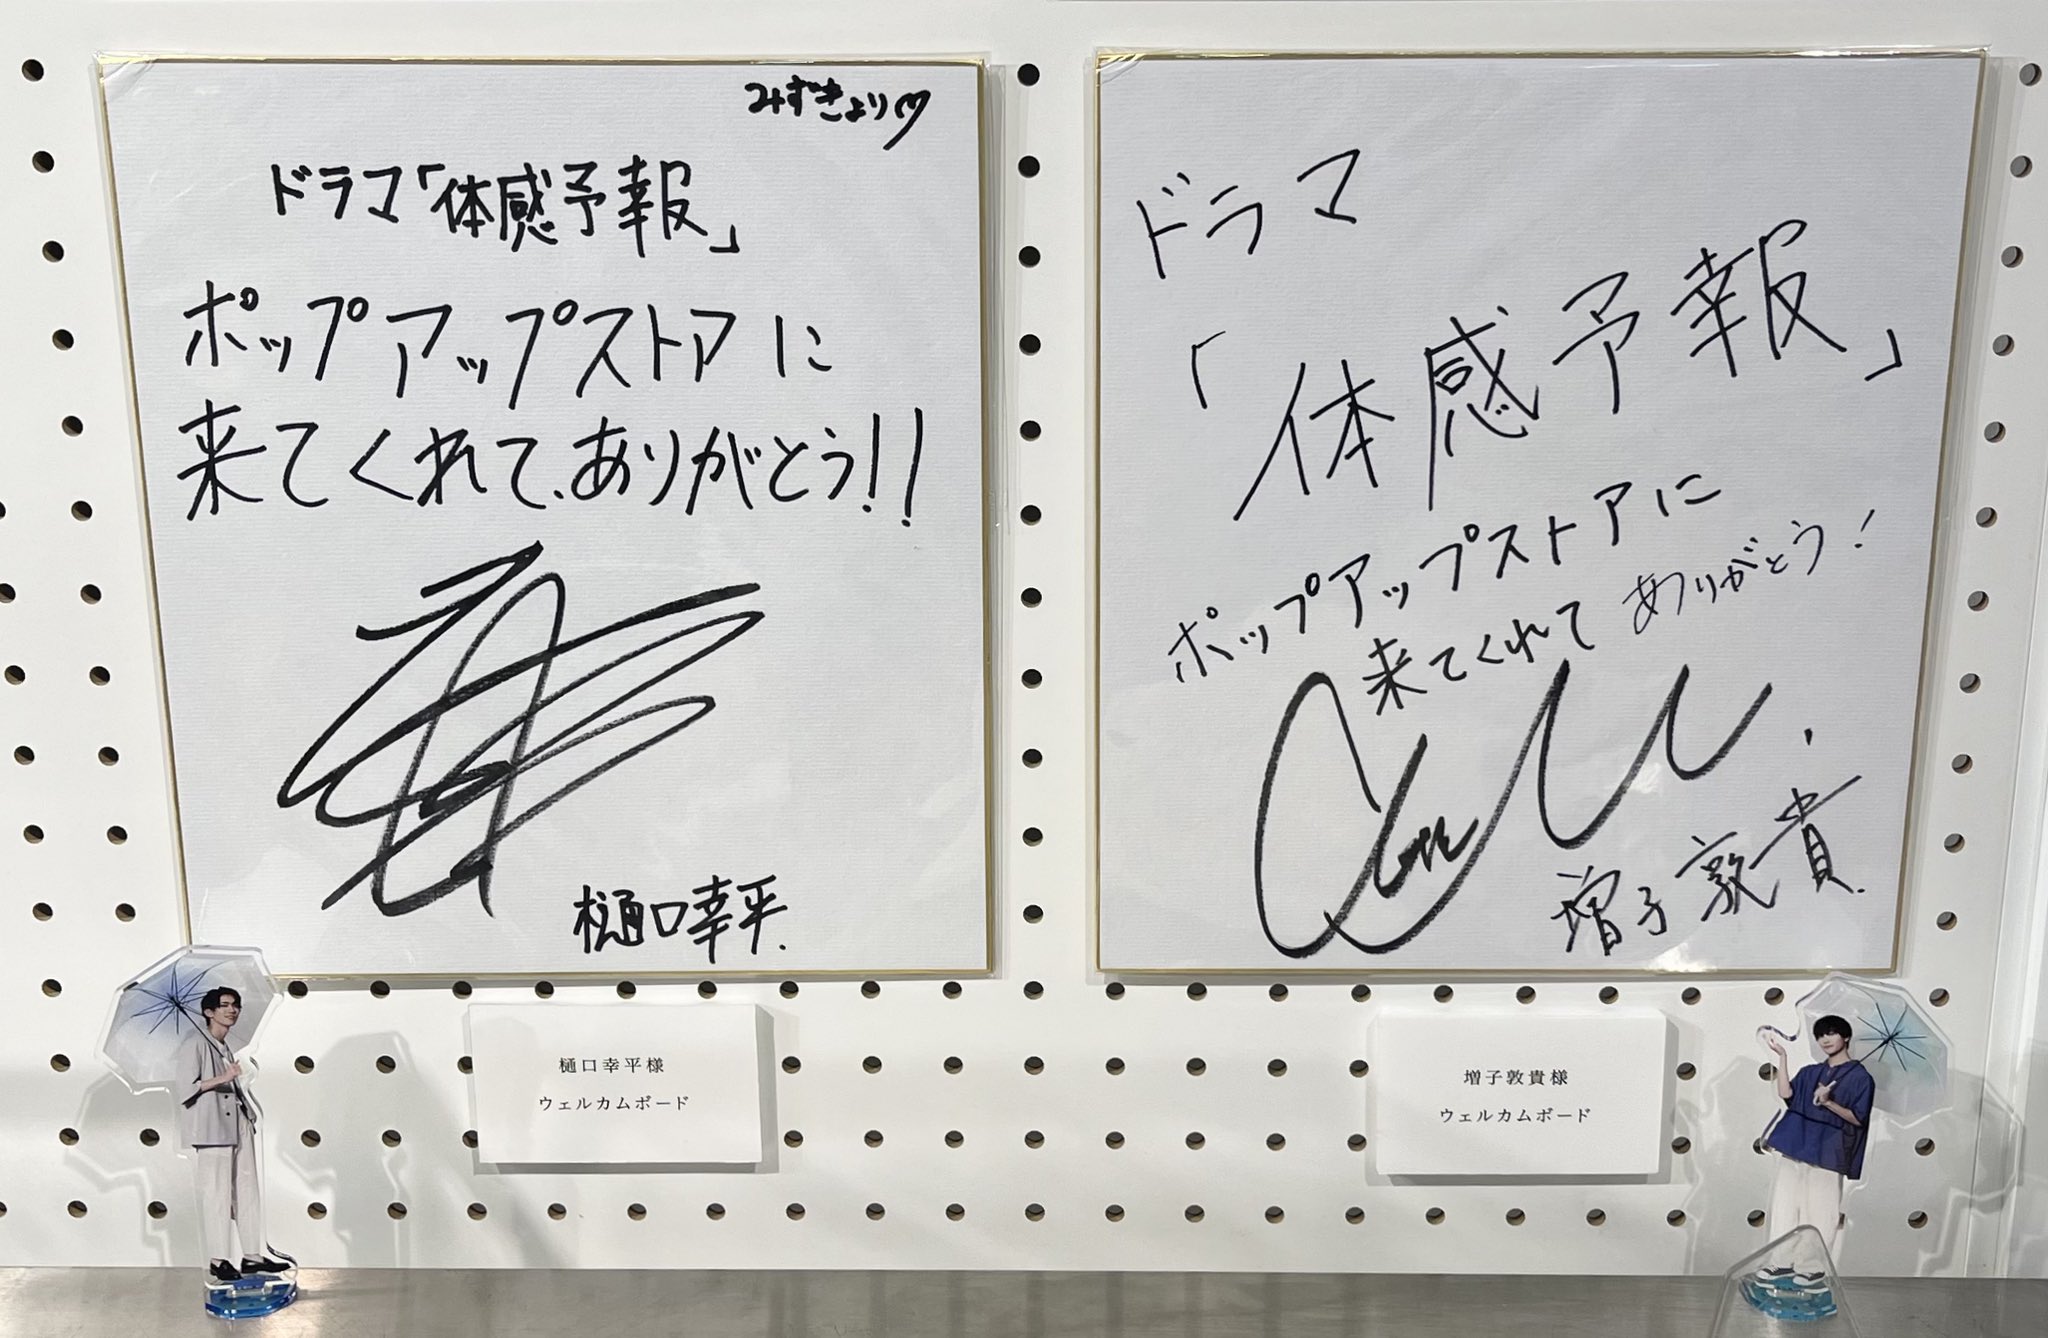 みずきより♡
ドラマ「体感予報」
ポップアップストアに
来てくれて、ありがとう!!
樋口幸平.
樋口幸平様
ウェルカムボード
ドラマ
「体感予報」
ポップアップストアに
来てくれてありがとう!
増子敦貴.
増子敦貴様
ウェルカムボード